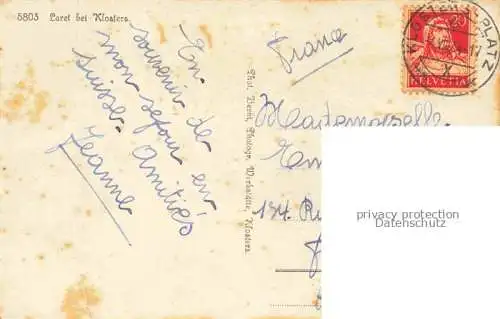 5803 Laret bei Klosters.
En
souvenir de
mon séjour en
Suisse. Amitiés
Jeanne
Phot. Berni, Photogr. Werkstätte, Klosters.
France
20
HELVETIA
PLATZ
Mademoiselle
134 Ru
privacy protection
Datenschutz